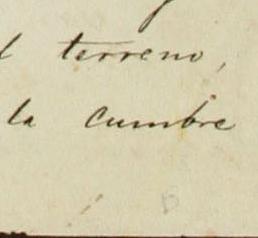 l terreno,
la cumbre